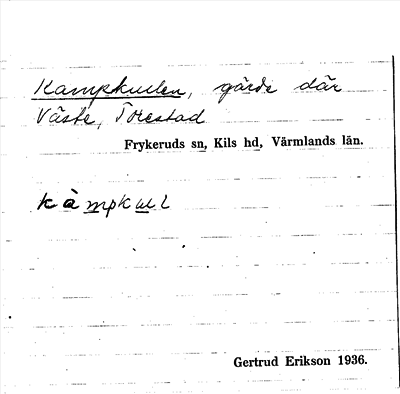 Kampkullen, gärde där
Väste, Torestad
Frykeruds sn, Kils hd, Värmlands län.
kàmpkul
Gertrud Erikson 1936.